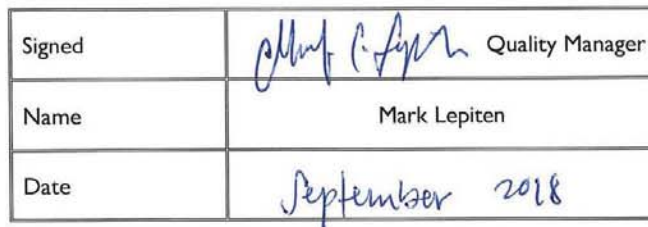 Signed Quality Manager
Name Mark Lepiten
Date September 2018